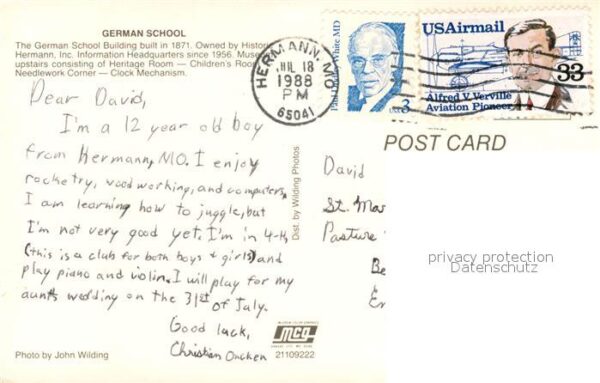 GERMAN SCHOOL
The German School Building built in 1871. Owned by Histor
Hermann, Inc. Information Headquarters since 1956. Muse
upstairs consisting of Heritage Room — Children's Roo
Needlework Corner — Clock Mechanism.
Dear David,
I'm a 12 year old boy
from Hermann, MO. I enjoy
rocketry, wood working, and computers.
I am learning how to juggle, but
I'm not very good yet. I'm in 4-H,
(this is a club for both boys & girls) and
play piano and violin. I will play for my
aunts wedding on the 31st of July.
Good luck,
Christian Oncken
Photo by John Wilding
MCG
21109222
Dist. by Wilding Photos
HERMANN, MO
JUL 18
1988
PM
65041
Paul Dudley White MD
3
USAirmail
33
Alfred V. Verville
Aviation Pioneer
POST CARD
David
St. Mar
Pasture
Be
En
privacy protection
Datenschutz